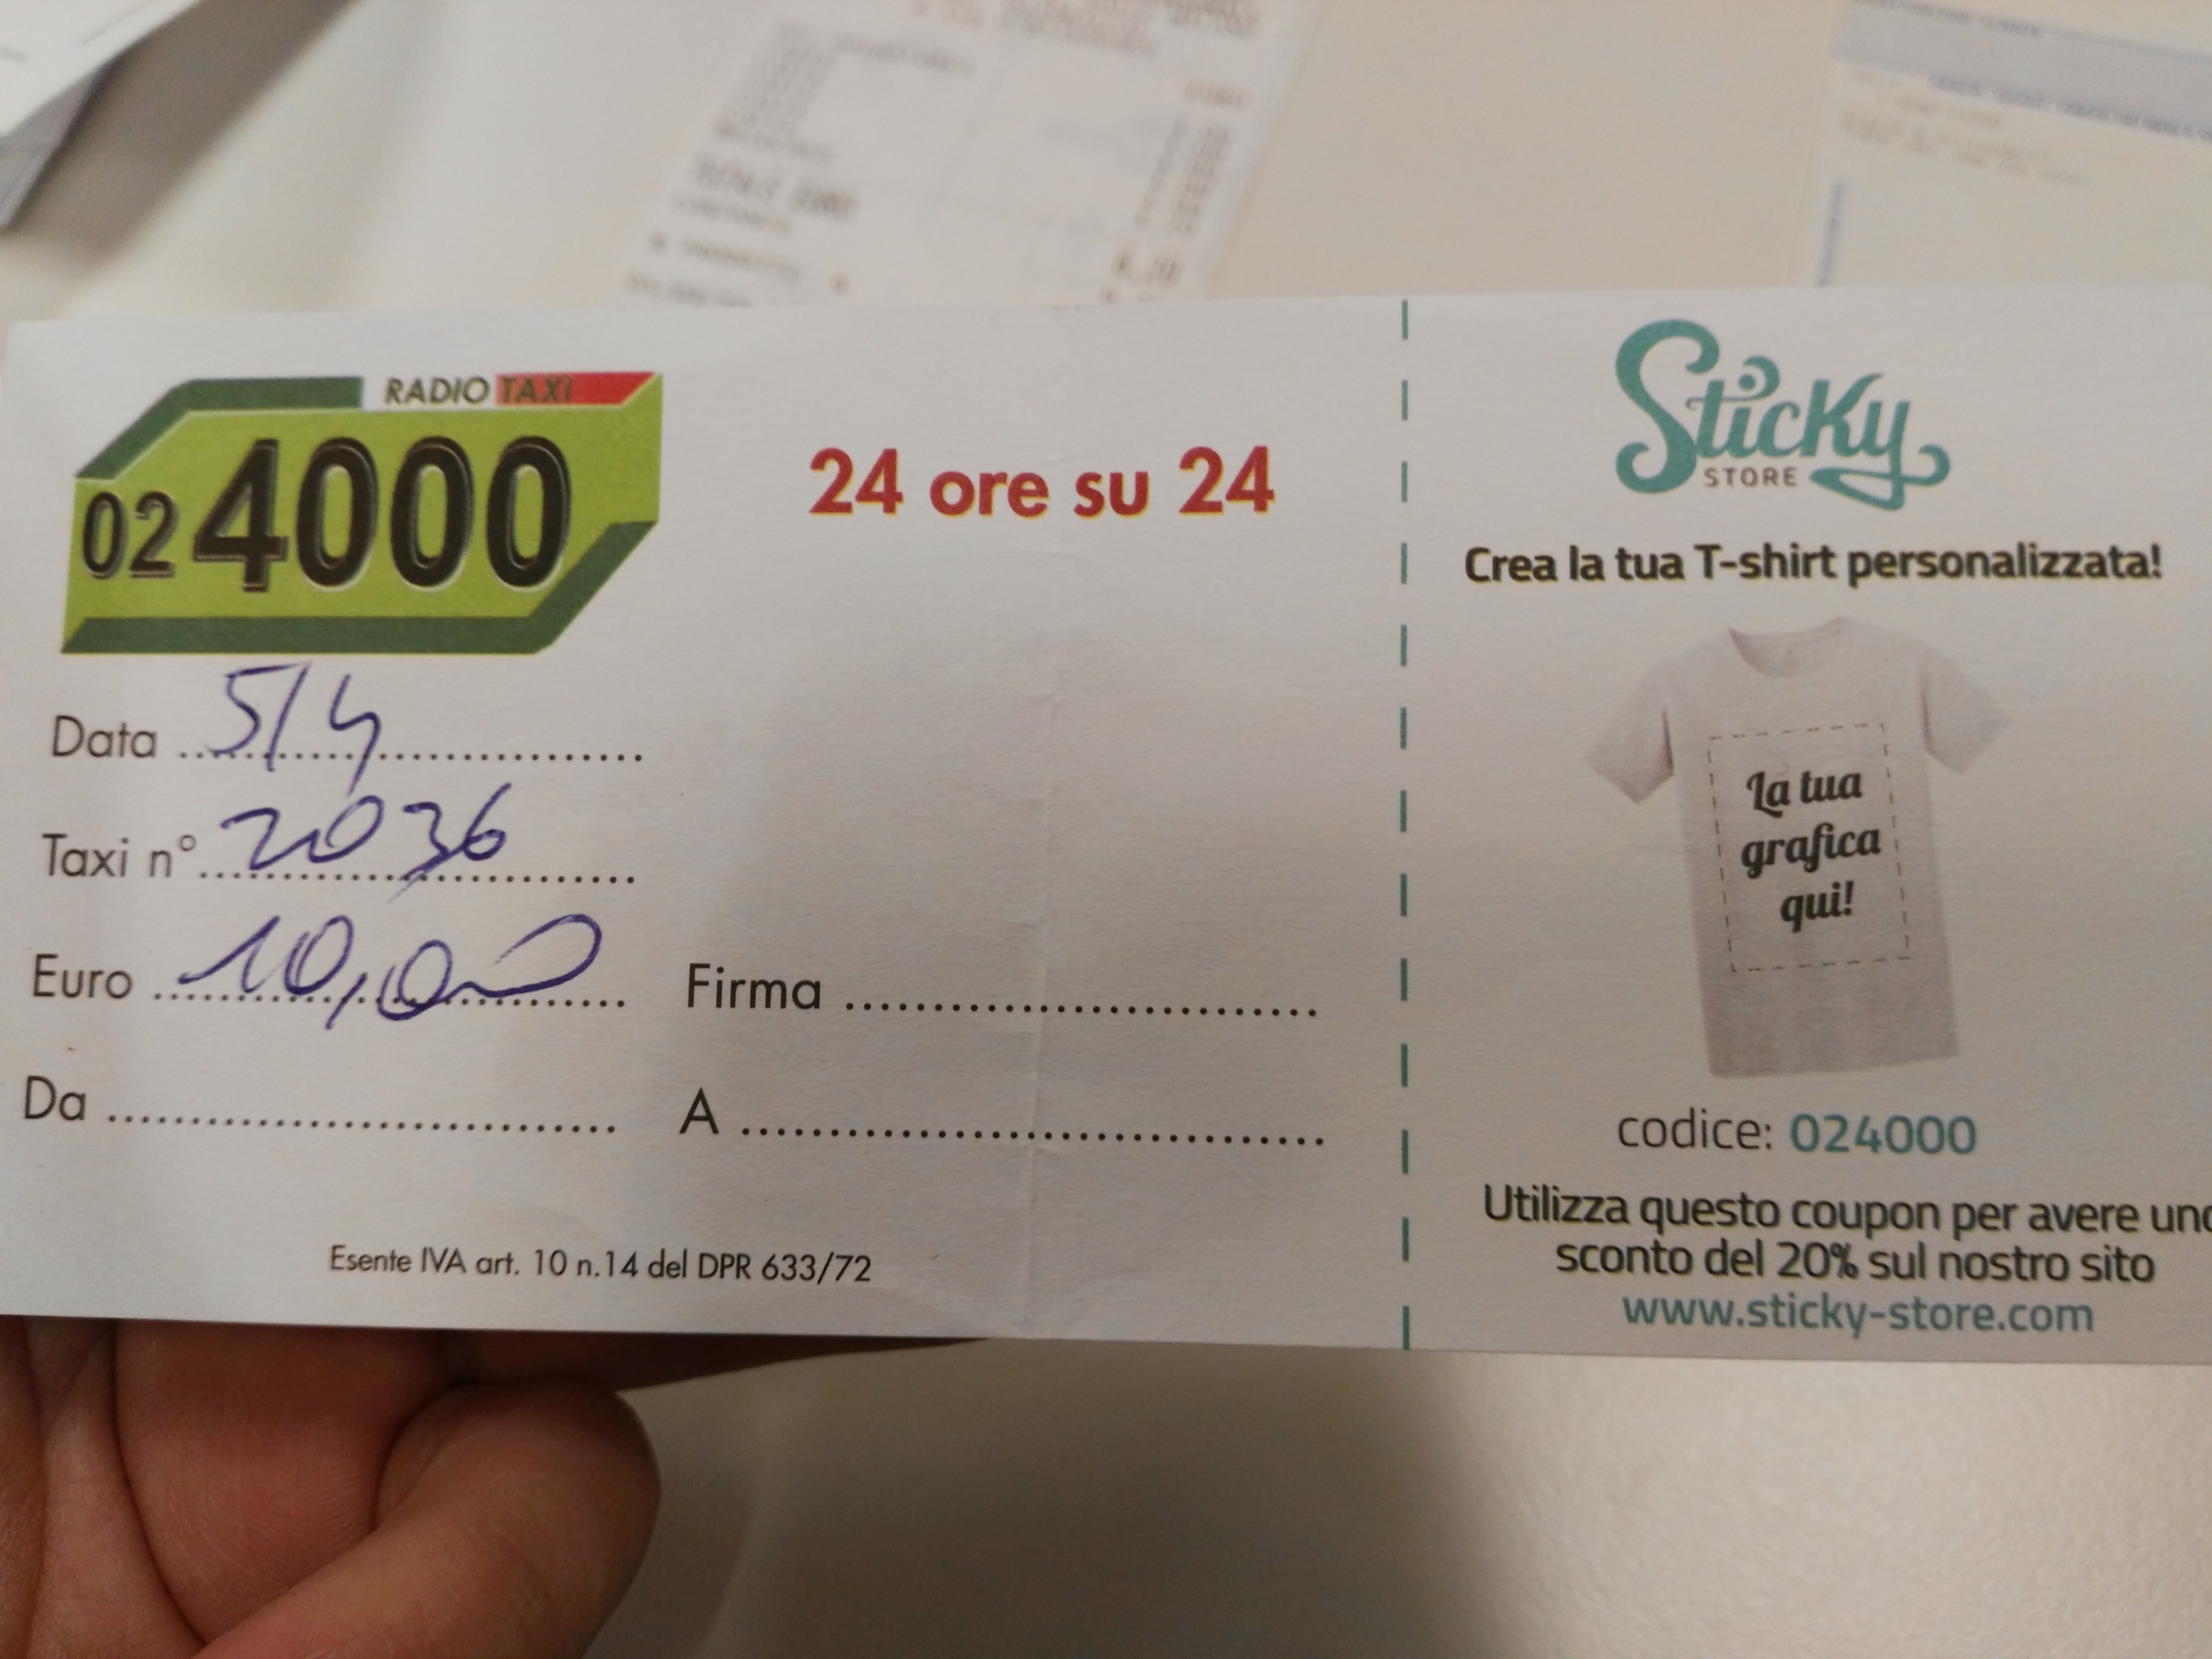 RADIO TAXI
02 4000
24 ore su 24
Data 5/4
Taxi n° 2036
Euro 10,00
Firma
Da
A
Esente IVA art. 10 n.14 del DPR 633/72
Sticky
STORE
Crea la tua T-shirt personalizzata!
La tua
grafica
qui!
codice: 024000
Utilizza questo coupon per avere uno
sconto del 20% sul nostro sito
www.sticky-store.com
TOTALE EURO